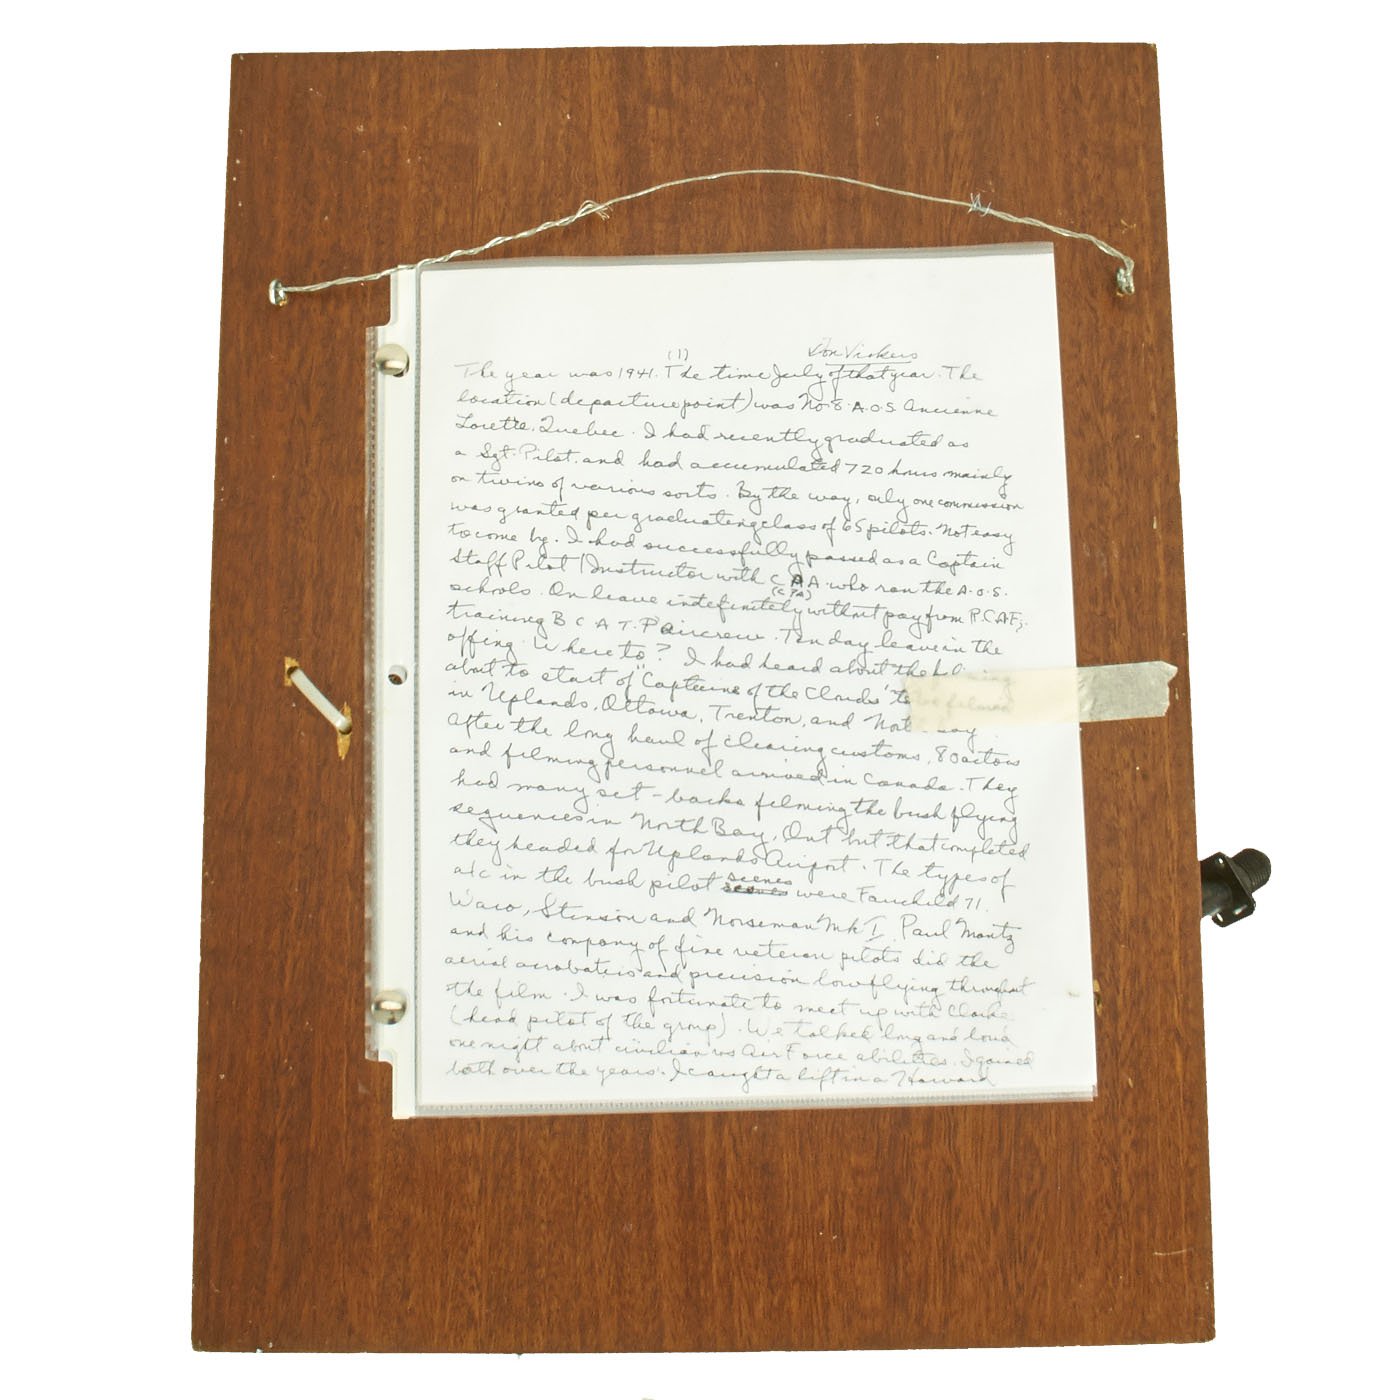 (1) Don Vickers
The year was 1941. The time July of that year. The
location (departure point) was No. 8 A.O.S. Ancienne
Lorette, Quebec. I had recently graduated as
a Sgt. Pilot, and had accumulated 720 hours mainly
on twins of various sorts. By the way, only one commission
was granted per graduating class of 65 pilots. Not easy
to come by. I had successfully passed as a Captain
Staff Pilot / Instructor with C A A who ran the A.O.S.
(C PA)
schools. On leave indefinitely without pay from R.C.A.F.;
training B C A T. P aircrew. Ten day leave in the
offing. Where to? I had heard about the
about to start of "Captains of the Clouds" to be filmed
in Uplands, Ottawa, Trenton, and North Bay.
After the long haul of clearing customs, 80 actors
and filming personnel arrived in Canada. They
had many set-backs filming the bush flying
sequences in North Bay, Ont but that completed
they headed for Uplands Airport. The types of
a/c in the bush pilot scenes were Fairchild 71,
Waco, Stinson and Norseman Mk I. Paul Mantz
and his company of fine veteran pilots did the
aerial acrobatics and precision low flying throughout
the film. I was fortunate to meet up with Clarke
(head pilot of the group). We talked long and loud
one night about civilian vs Air Force abilities. I gained
both over the years. I caught a lift in a Harvard